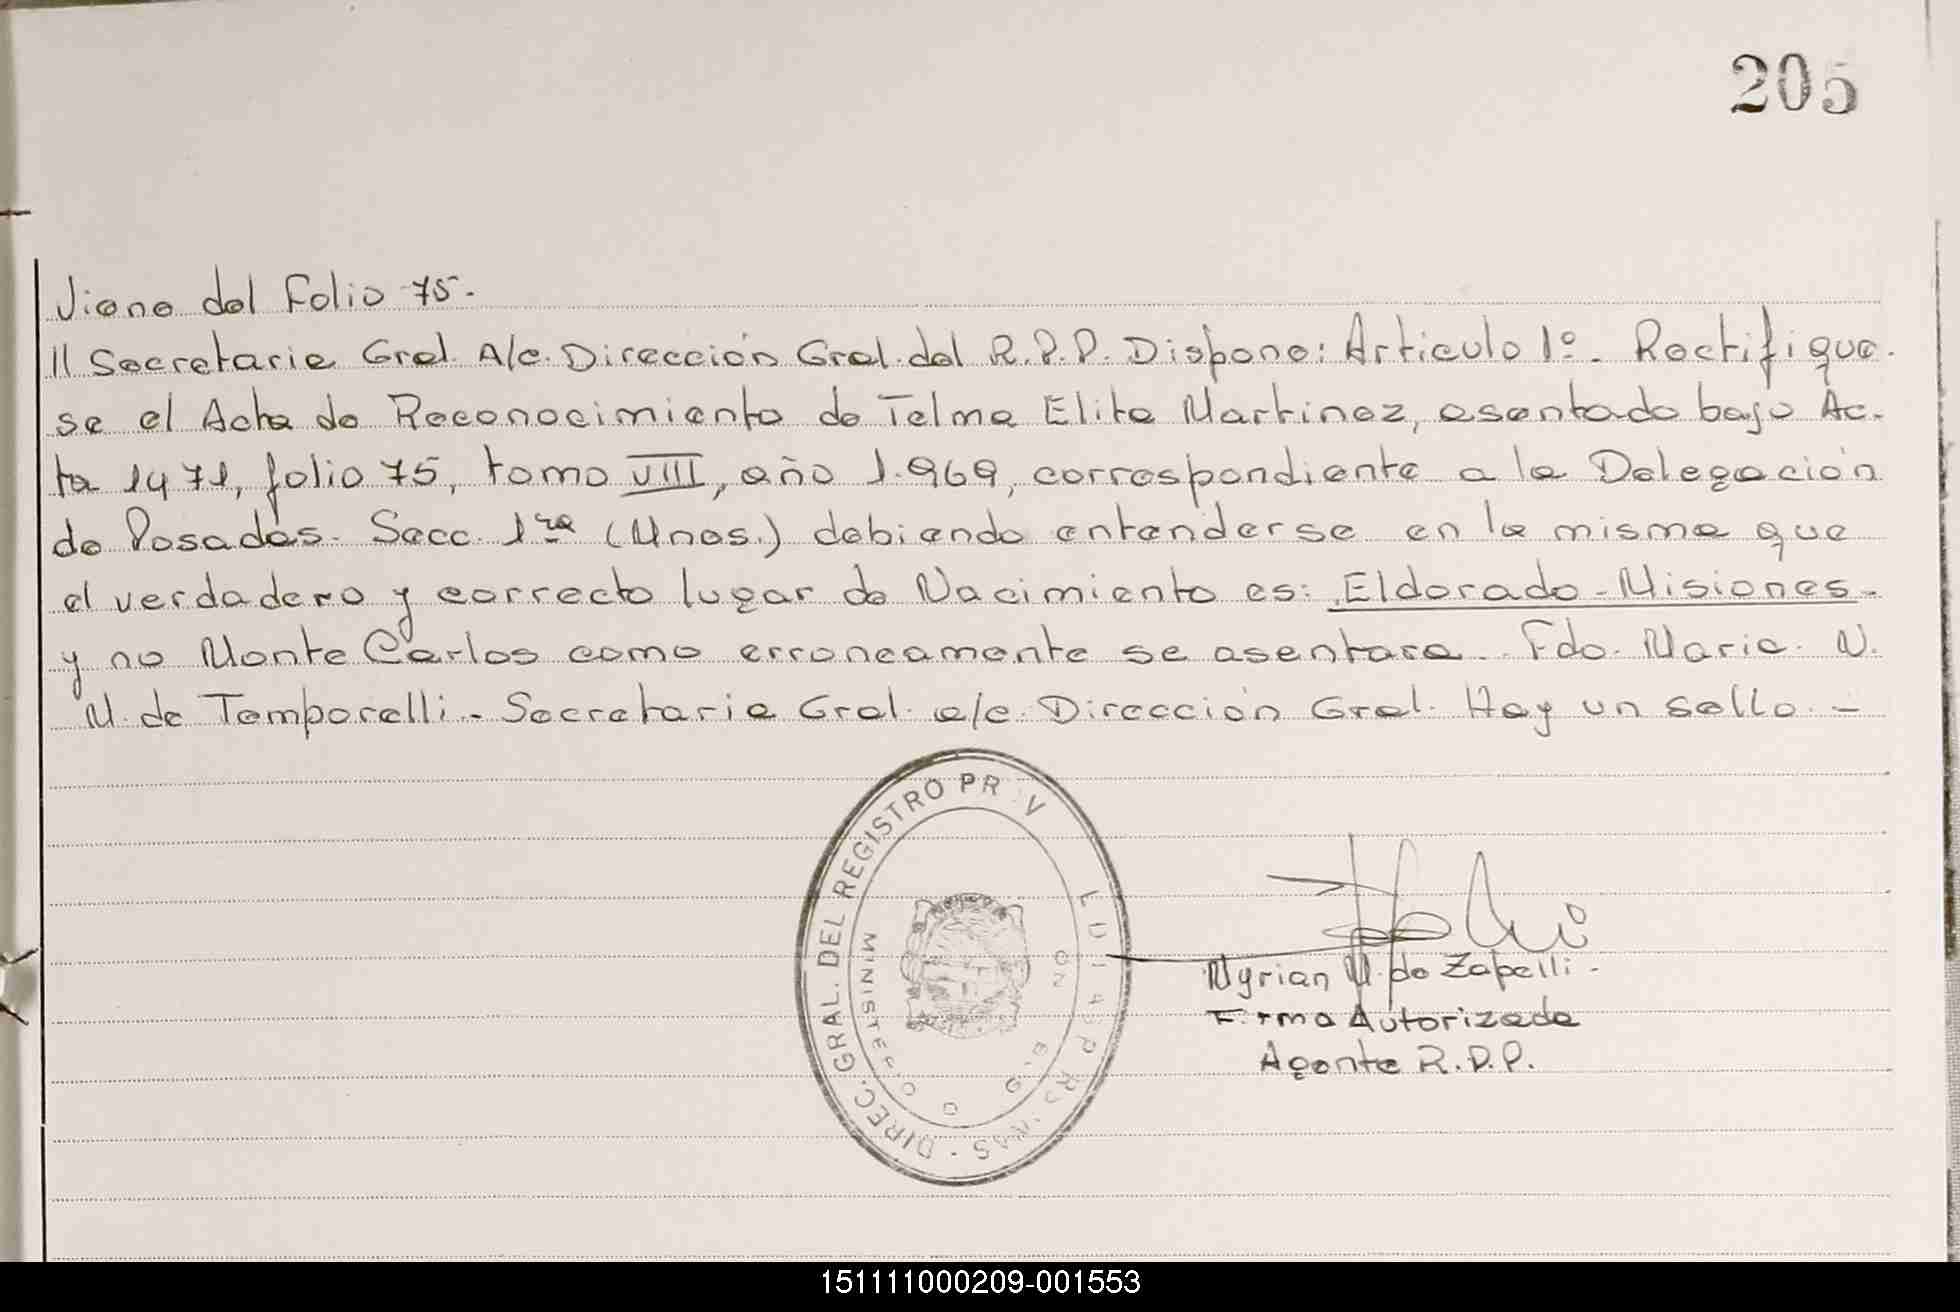 205
Viene del Folio 75.
// Secretaria Gral. A/c. Dirección Gral. del R.P.P. Dispone: Articulo 1º. Rectifique.
se el Acta de Reconocimiento de Telma Elita Martinez, asentado bajo Ac.
ta 1471, folio 75, tomo VIII, año 1.969, correspondiente a la Delegación
de Posadas. Secc. 1ra (Unos.) debiendo entenderse en la misma que
el verdadero y correcto lugar de Nacimiento es: Eldorado - Misiones.
y no Monte Carlos como erroneamente se asentara. Fdo. Maria. N.
M. de Temporelli. Secretaria Gral. a/c. Dirección Gral. Hay un sello. -
DIREC. GRAL. DEL REGISTRO PR V
MINISTER O
Myrian M. de Zapelli -
Firma Autorizada
Agente R.D.P.
151111000209-001553